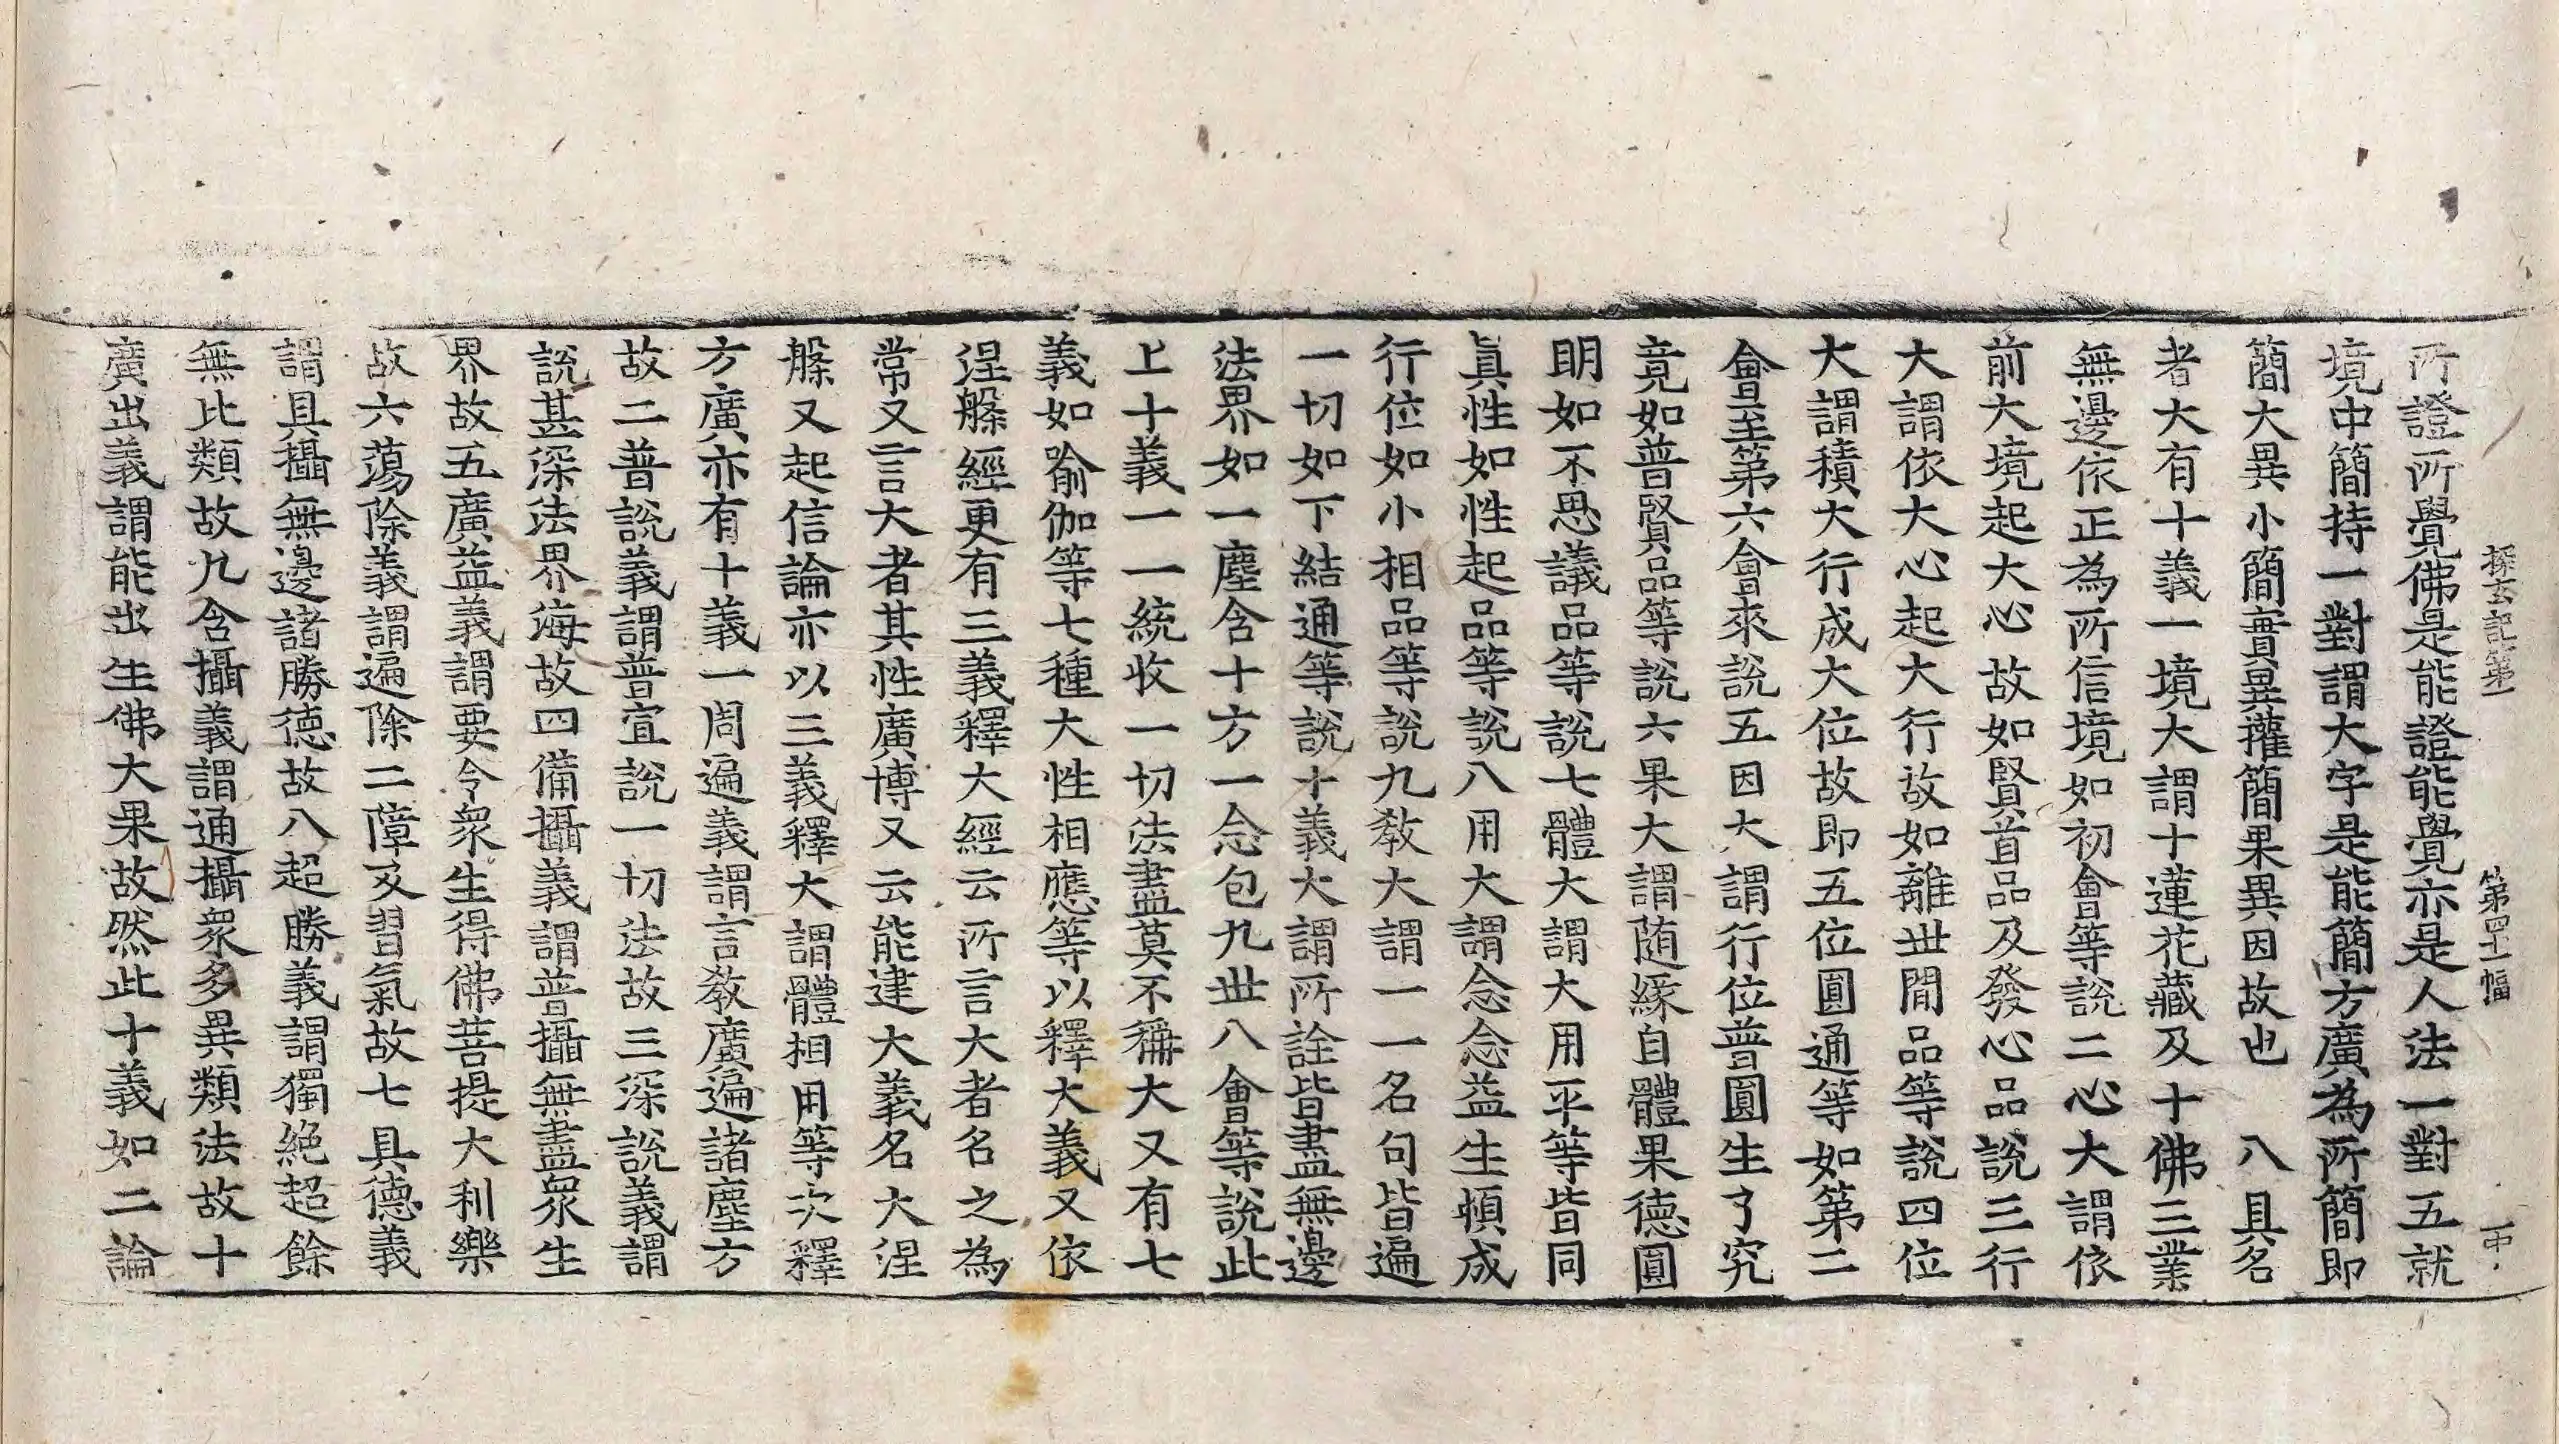 探玄記第一 第四十一幅 中
所證所覺佛是能證能覺亦是人法一對五就
境中簡持一對謂大字是能簡方廣為所簡即
簡大異小簡實異權簡果異因故也 八具名
者大有十義一境大謂十蓮花藏及十佛三業
無邊依正為所信境如初會等說二心大謂依
前大境起大心故如賢首品及發心品說三行
大謂依大心起大行故如離世間品等說四位
大謂積大行成大位故即五位圓通等如第二
會至第六會來說五因大謂行位普圓生了究
竟如普賢品等說六果大謂随緣自體果德圓
明如不思議品等說七體大謂大用平等皆同
真性如性起品等說八用大謂念念益生頓成
行位如小相品等說九教大謂一一名句皆遍
一切如下結通等說十義大謂所詮皆盡無邊
法界如一塵含十方一念包九世八會等說此
上十義一一統收一切法盡莫不稱大又有七
義如喻伽等七種大性相應等以釋大義又依
涅槃經更有三義釋大經云所言大者名之為
常又言大者其性廣博又云能建大義名大涅
槃又起信論亦以三義釋大謂體相用等次釋
方廣亦有十義一周遍義謂言教廣遍諸塵方
故二普說義謂普宣說一切法故三深說義謂
說甚深法界海故四備攝義謂普攝無盡眾生
界故五廣益義謂要令眾生得佛菩提大利樂
故六蕩除義謂遍除二障及習氣故七具德義
謂具攝無邊諸勝德故八超勝義謂獨絕超餘
無比類故九含攝義謂通攝眾多異類法故十
廣出義謂能出生佛大果故然此十義如二論